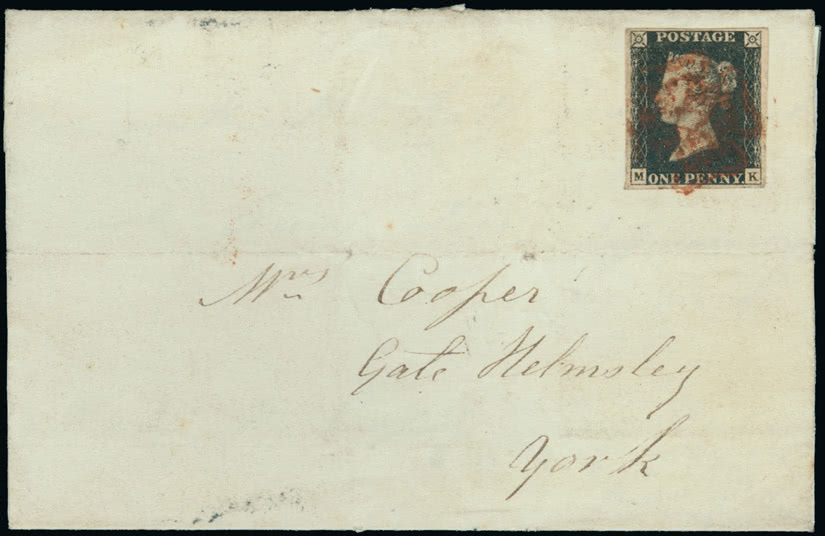 POSTAGE
M ONE PENNY K
Mrs Cooper
Gate Helmsley
York